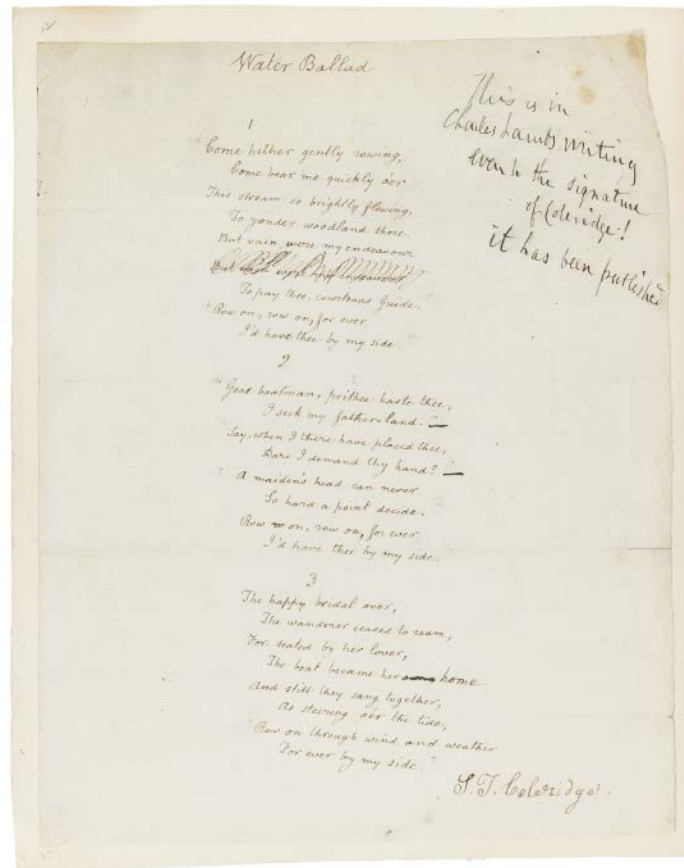 Water Ballad
This is in
Charles Lamb's writing
even to the signature
of Coleridge!
it has been published
1
"Come hither gently rowing,
Come bear me quickly o'er
This stream so brightly flowing,
To yonder woodland shore.
But vain were my endeavour
To pay thee, courteous guide.
Row on, row on, for ever
I'd have thee by my side.
2
Good boatman, prithee haste thee,
I seek my father-land."—
"Say, when I there have placed thee,
Dare I demand thy hand?"—
"A maiden's head can never
So hard a point decide.
Row on, row on, for ever
I'd have thee by my side."
3
The happy bridal over,
The wanderer ceased to roam,
For seated by her lover,
The boat became her home
And still they sang together,
As steering o'er the tide,
"Row on through wind and weather
For ever by my side."
S. T. Coleridge.